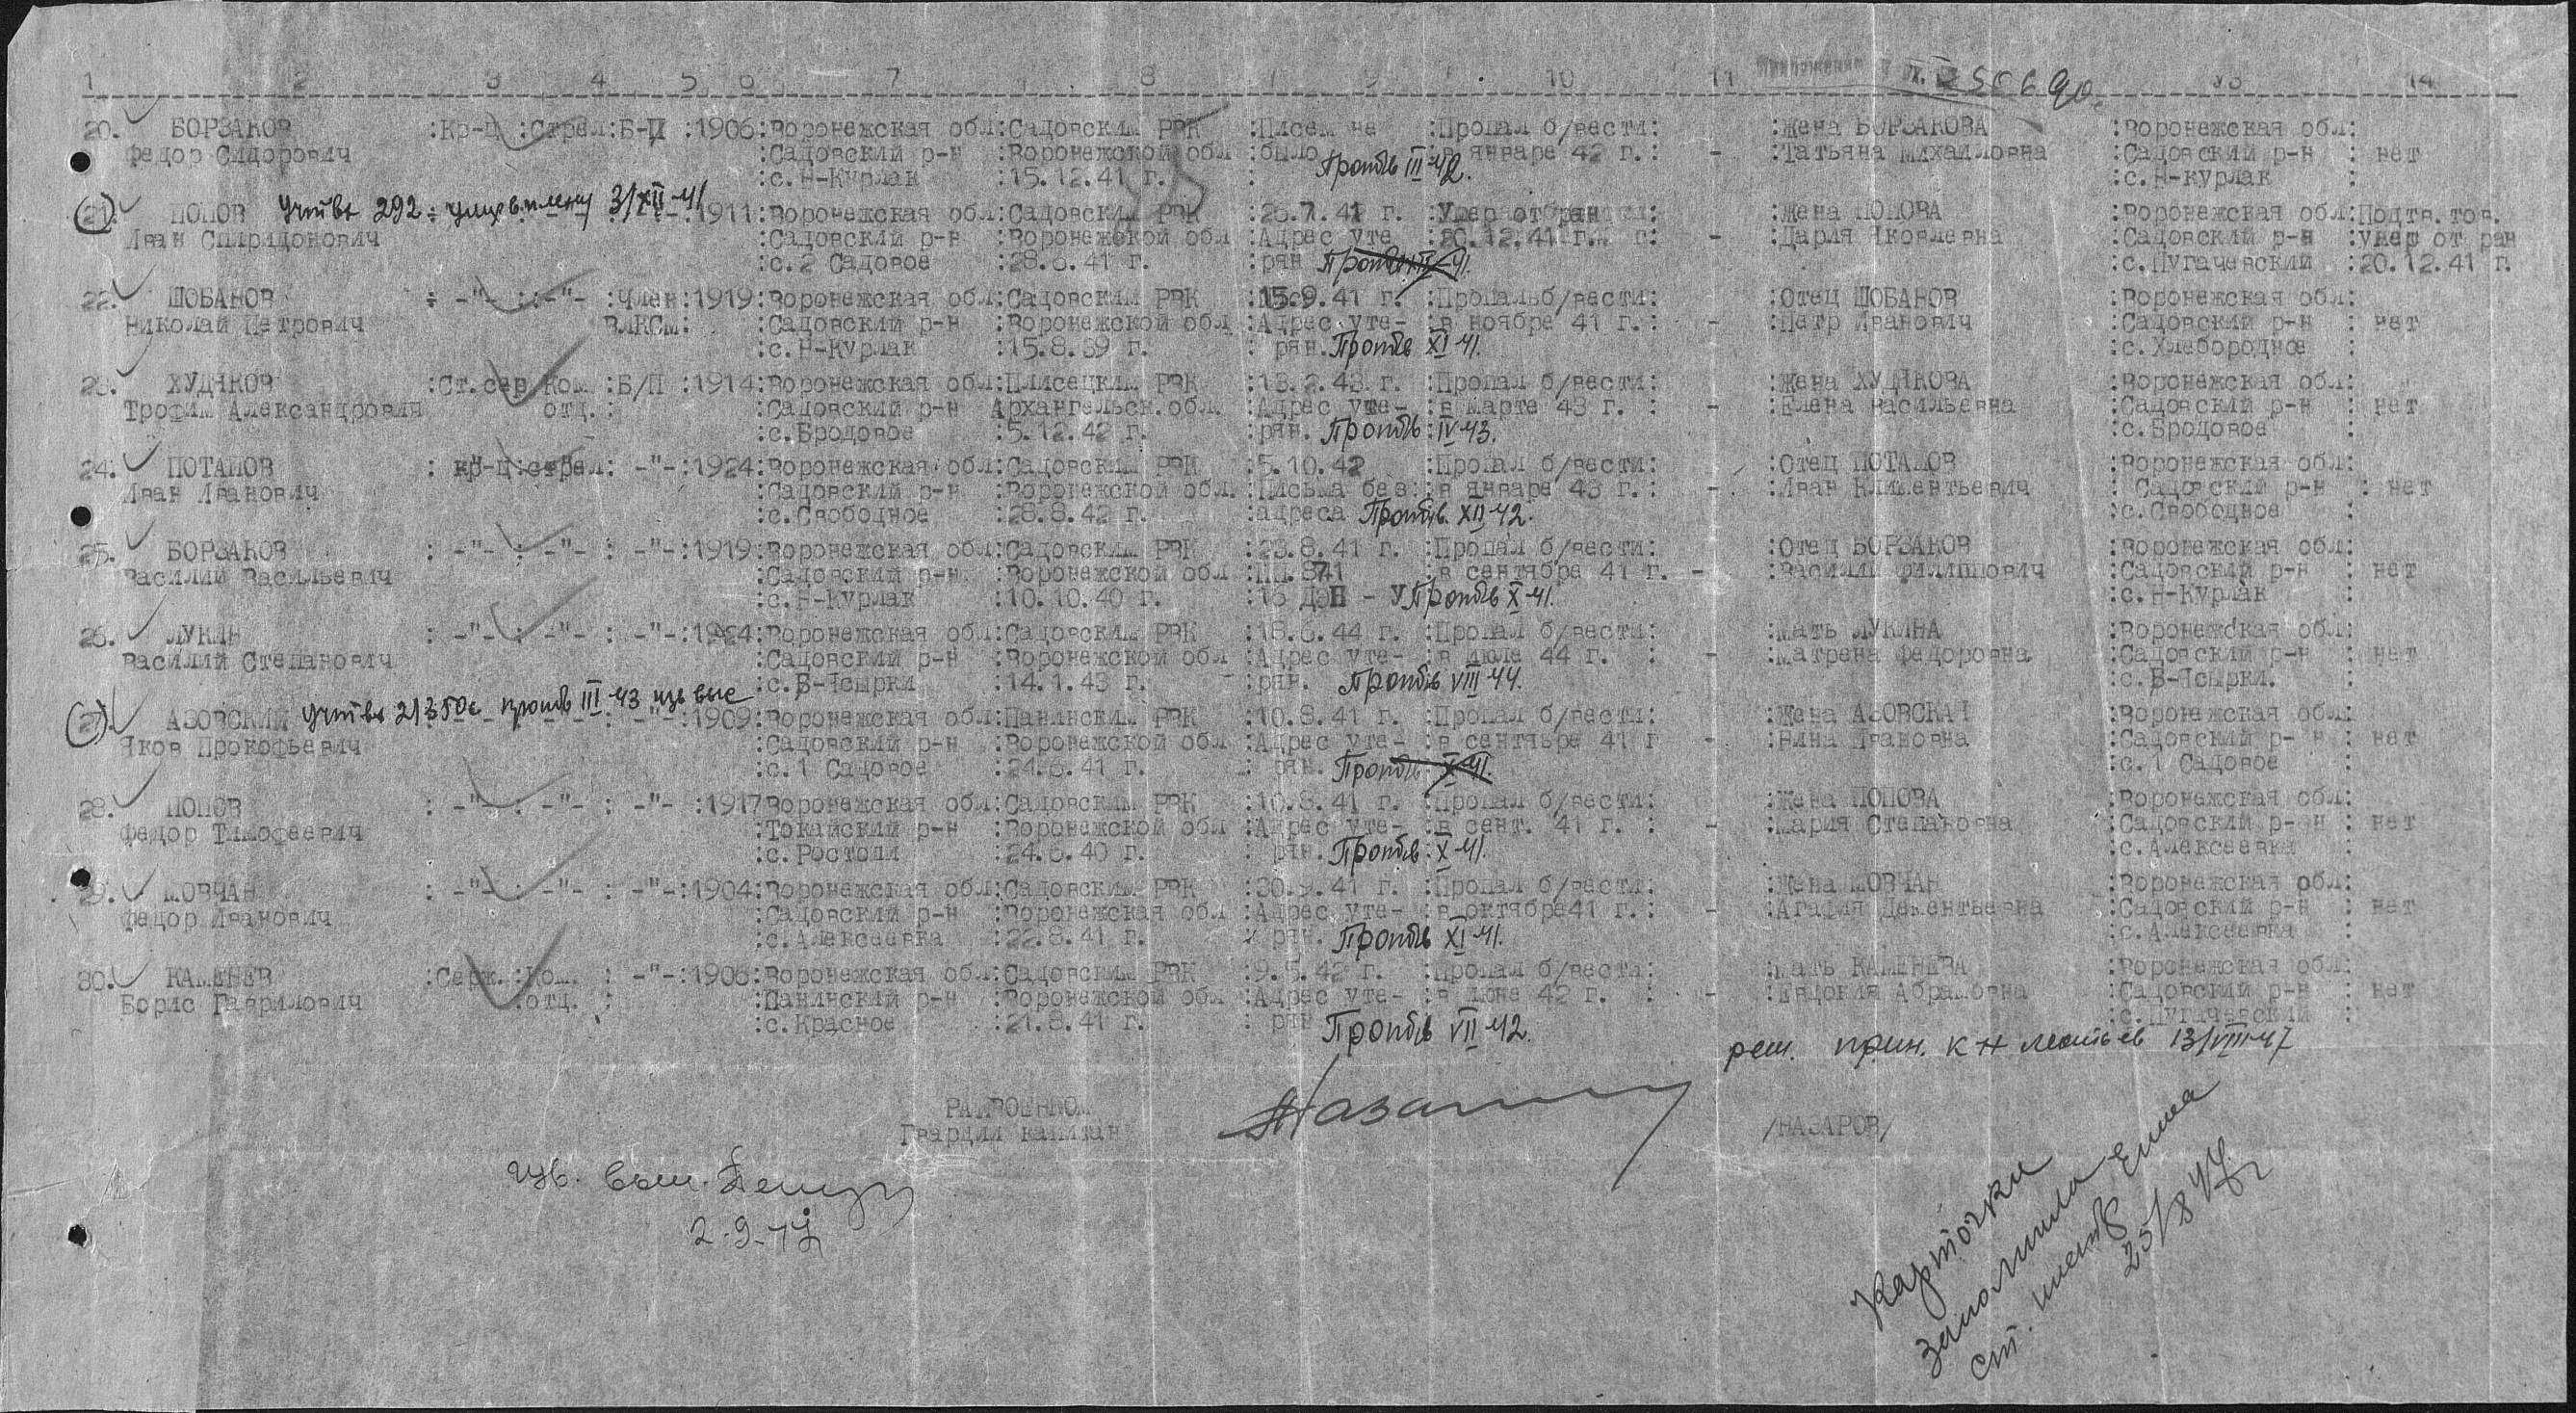 1 2 3 4 5 6 7 8 9 10 11 13 14
20. БОРЗАКОВ :Кр-ц :Стрел:Б-П :1906:Воронежская обл:Садовским РВК :Писем не :Пропал б/вести: :Жена БОРЗАКОВА :Воронежская обл:
Федор Сидорович :Садовский р-н :Воронежской обл :было :в январе 42 г.: - :Татьяна Михайловна :Садовский р-н : нет
:с.Н-Курлак :15.12.41 г. : Пропбв III-42. :с.Н-Курлак :
21. ПОПОВ 292 3/XII-41 :1911:Воронежская обл:Садовским РВК :Умер от ран : :Жена ПОПОВА :Воронежская обл:Подтв.тов.
Иван Спиридонович :Садовский р-н :Воронежской обл :Адрес уте :20.12.41 г. - :Дария Яковлевна :Садовский р-н :умер от ран
:с.2 Садовое :28.6.41 г. :рян :с.Пугачевский :20.12.41 г.
22. ШОБАНОВ : -"- : -"- :Член:1919:Воронежская обл:Садовским РВК :15.9.41 г. :Пропал б/вести: :Отец ШОБАНОВ :Воронежская обл:
Николай Петрович ВЛКСМ: :Садовский р-н :Воронежской обл :Адрес уте- :в ноябре 41 г.: - :Петр Иванович :Садовский р-н : нет
:с.Н-Курлак :15.8.39 г. : рян. Пропбв XI-41. :с.Хлебородное :
23. ХУДЯКОВ :Ст.сер Ком. :Б/П :1914:Воронежская обл:Плисецким РВК :13.2.43 г. :Пропал б/вести: :Жена ХУДЯКОВА :Воронежская обл:
Трофим Александрович отд. : :Садовский р-н Архангельск.обл. :Адрес уте- :в марте 43 г. : - :Елена Васильевна :Садовский р-н : нет
:с.Бродовое :5.12.42 г. :рян. Пропбв IV-43. :с.Бродовое :
24. ПОТАПОВ : кр-ц:стрел: -"-:1924:Воронежская обл:Садовским РВК :5.10.42 :Пропал б/вести: :Отец ПОТАПОВ :Воронежская обл:
Иван Иванович :Садовский р-н :Воронежской обл.:Письма без :в январе 43 г.: - :Иван Климентьевич : Садовский р-н : нет
:с.Свободное :28.8.42 г. :адреса Пропбв. XII-42. :с.Свободное :
25. БОРЗАКОВ : -"- : -"- : -"-:1919:Воронежская обл:Садовским РВК :23.8.41 г. :Пропал б/вести: :Отец БОРЗАКОВ :Воронежская обл:
Василий Васильевич :Садовский р-н :Воронежской обл :ПП.871 :в сентябре 41 г. - :Василий Филиппович :Садовский р-н : нет
:с.Н-Курлак :10.10.40 г. Пропбв X-41. :с.Н-Курлак :
26. ЛУКИН : -"- : -"- : -"-:1924:Воронежская обл:Садовским РВК :18.6.44 г. :Пропал б/вести: :Мать ЛУКИНА :Воронежская обл:
Василий Степанович :Садовский р-н :Воронежской обл :Адрес уте- :в июле 44 г. : - :Матрена Федоровна :Садовский р-н : нет
:с.В-Тсырки :14.1.43 г. :рян. Пропбв VIII-44. :с.В-Тсырки. :
27. АЗОВСКИЙ III-43 : -"-:1909:Воронежская обл:Панинским РВК :10.8.41 г. :Пропал б/вести: :Жена АЗОВСКАЯ :Воронежская обл:
Яков Прокофьевич :Садовский р-н :Воронежской обл :Адрес уте- :в сентябре 41 г - :Нина Ивановна :Садовский р-н : нет
:с.1 Садовое :24.6.41 г. : рян. Пропбв. X-41. :с.1 Садовое :
28. ПОПОВ : -"- : -"- : -"- :1917Воронежская обл:Садовским РВК :10.8.41 г. :Пропал б/вести: :Жена ПОПОВА :Воронежская обл:
Федор Тимофеевич :Токайский р-н :Воронежской обл :Адрес уте- :в сент. 41 г. : - :Мария Степановна :Садовский р-н : нет
:с.Ростоши :24.6.40 г. : рян. Пропбв. X-41. :с.Алексеевка :
29. МОВЧАН : -"- : -"- : -"-:1904:Воронежская обл:Садовским РВК :30.9.41 г. :Пропал б/вести: :Жена МОВЧАН :Воронежская обл:
Федор Иванович :Садовский р-н :Воронежская обл :Адрес уте- :в октябре41 г.: - :Агафия Дементьевна :Садовский р-н : нет
:с.Алексеевка :22.8.41 г. рян. Пропбв XI-41. :с.Алексеевка :
30. КАМЕНЕВ :Серж.:Ком. : -"-:1906:Воронежская обл:Садовским РВК :9.5.42 г. :Пропал б/вести: :Мать КАМЕНЕВА :Воронежская обл:
Борис Гаврилович :отд. : :Панинский р-н :Воронежской обл :Адрес уте- :в июне 42 г. : - :Евдокия Абрамовна :Садовский р-н : нет
:с.Красное :21.8.41 г. : рян Пропбв VII-42. :с.Пугачевский :
реш. прин. 13/VIII-47
РАЙВОЕНКОМ
Гвардии капитан /НАЗАРОВ/
2-9-47
Карточки
заполнила
ст.
25/8 47 г